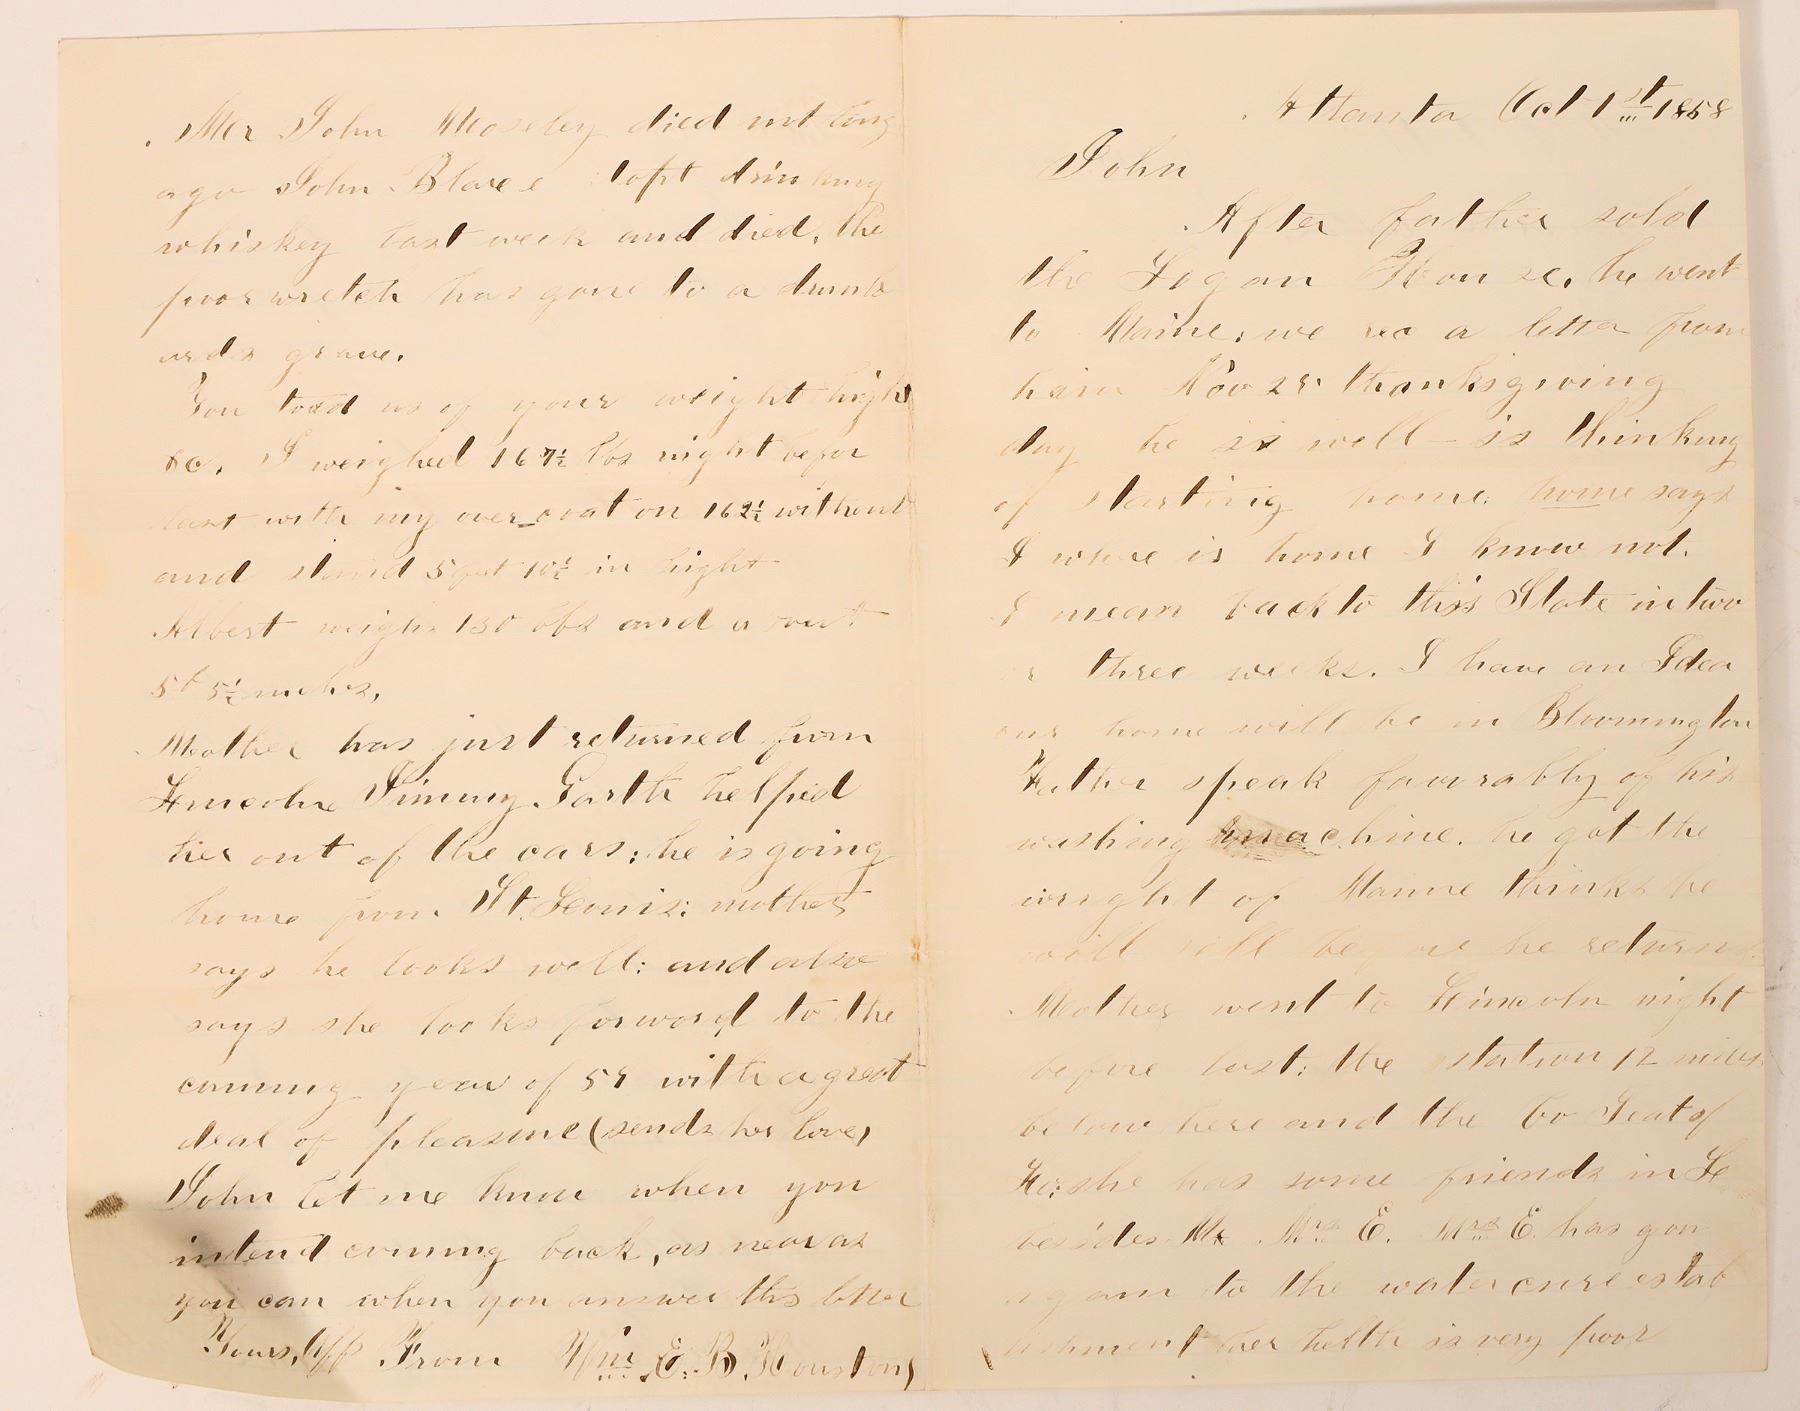 Atlanta Oct 1st 1858
John
After father sold
the Logan House, he went
to Maine, we rec a letter from
him Nov 25 thanksgiving
day he is well - is thinking
of starting home; home says
I where is home I know not.
I mean back to this State in two
or three weeks. I have an Idea
our home will be in Bloomington
Father speak favorably of his
washing machine. he got the
wright of Maine thinks he
will sell before he returns.
Mother went to Lincoln night
before last; the station 12 miles
below here and the Co Seat of
Lo; she has some friends in Lo
besides Mr Mrs E. Mrs E. has gon
again to the watercure estab
ishment her helth is very poor
Mr John Moseley died not long
ago John Blace topt drinking
whiskey last week and died, the
poor wretch has gone to a drunk
ards grave.
You toad us of your weight hight
&c. I weighed 167½ lbs night befor
last with my over coat on 162½ without
and stand 5 feet 10½ in hight
Albert weighs 130 lbs and about
5f 5½ inches,
Mother has just returned from
Lincoln Jimmy Garth helped
her out of the cars; he is going
home from St. Louis; mother
says he looks well; and also
says she looks forword to the
coming year of 59 with a great
deal of pleasure (sends her love,
John let me know when you
intend coming back, as near as
you can when you answer this letter
Yours, Aff From Wm E. B. Houston